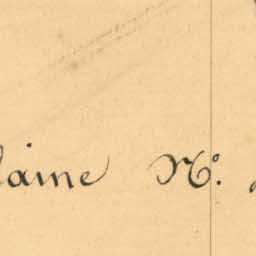 laine Nº.